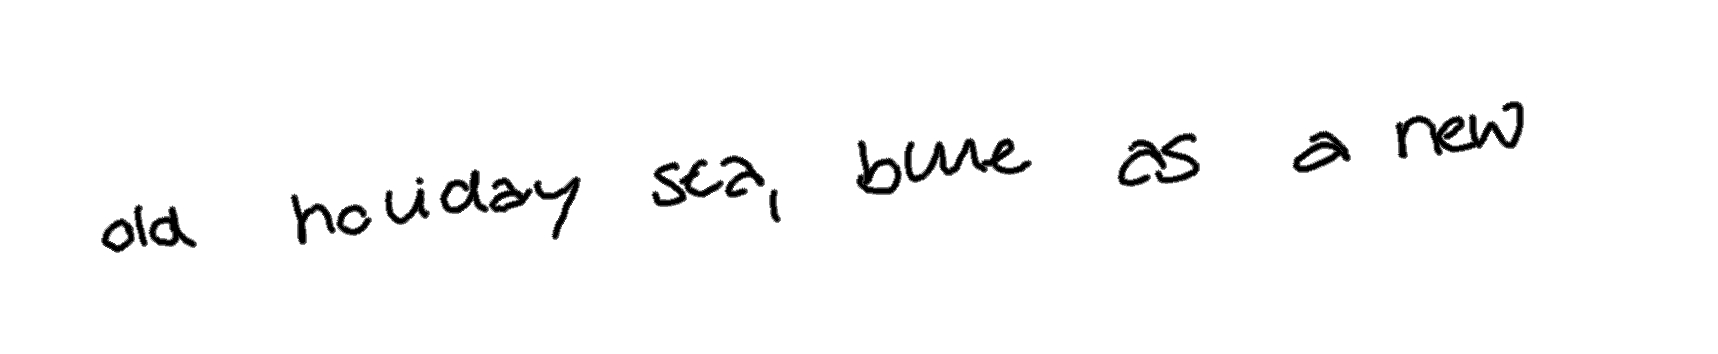 old holiday sea, blue as a new